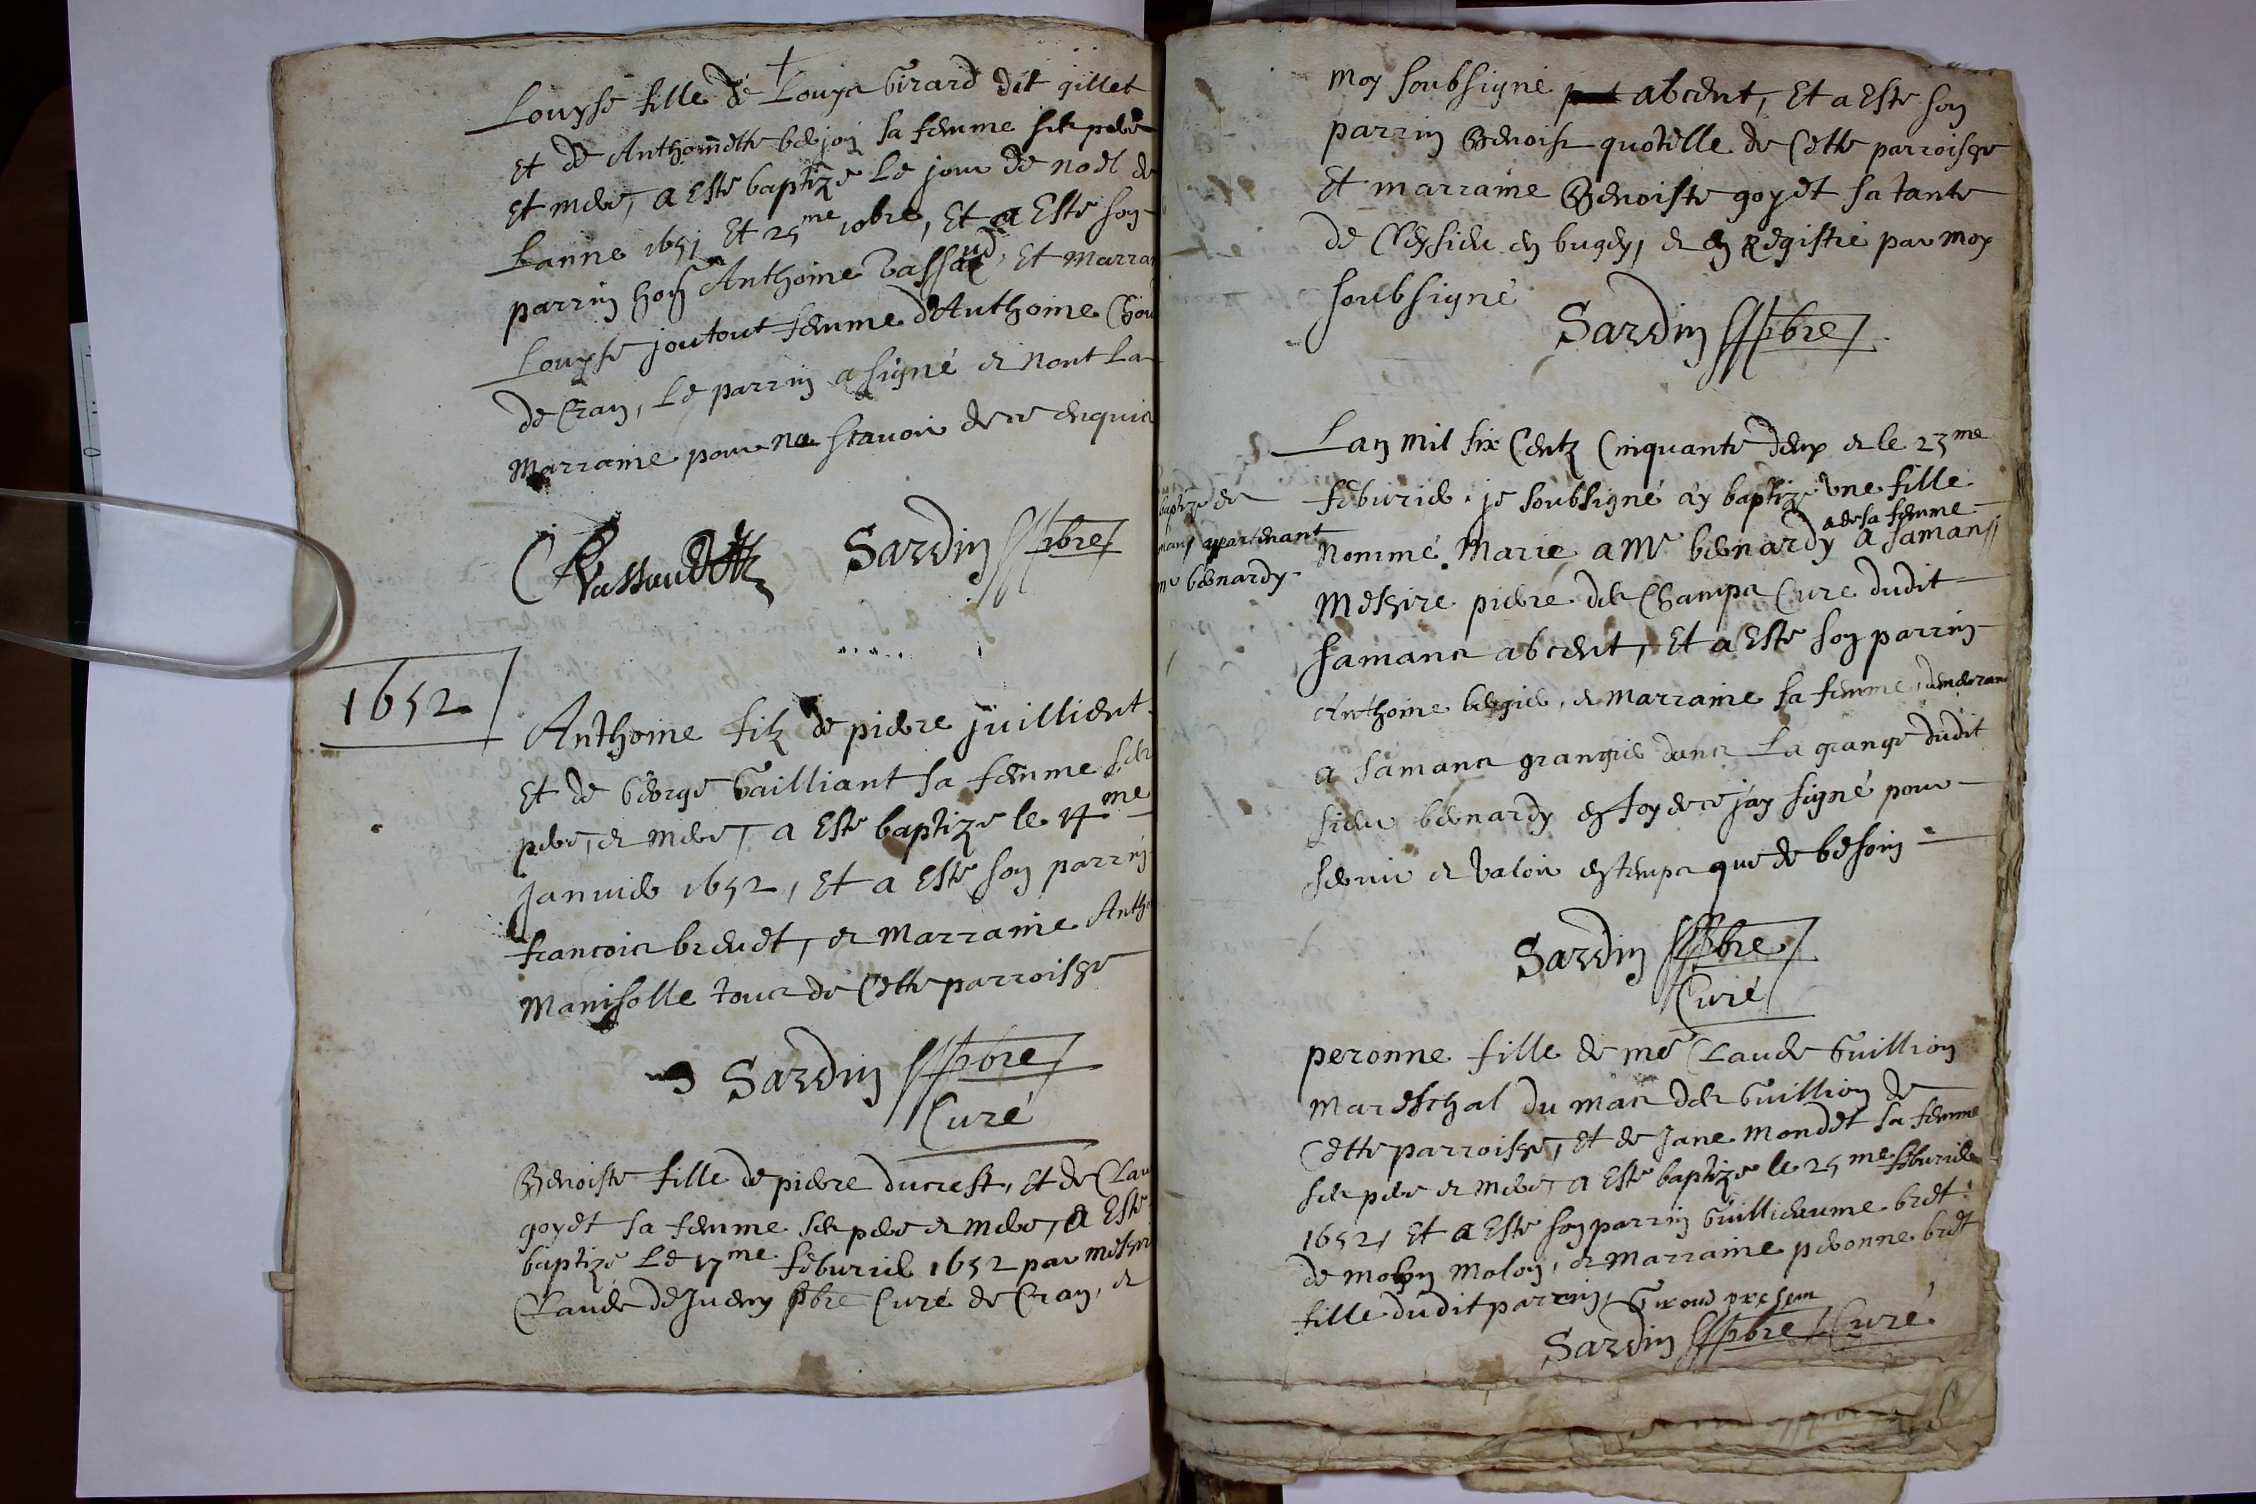 Louyse fille de Louys Girard dit gillet
et de Anthoinette bejon sa femme ses pere
et mere, a esté baptizé le jour de noel de
Lanné 1651 et 25me xbre, et a esté son
parrin hon Anthoine Vassaud, et Marra
Louyse joutout femme d'Anthoine
de Cran, le parrin a signé et nont la
Marraine pour ne scavoir de ce enquis
Sardin pbre
1652
Anthoine filz de piere juillient
et de George Gailliant sa femme ses
pere, et mere, a esté baptizé le 14me
Janvier 1652, et a esté son parrin
francois brevet, et Marraine Anth
Manisolle tous de Cette parroisse
Sardin pbre
Curé
Benoiste fille de piere ducrest, et de Clau
goyet sa femme ses pere et mere, a esté
baptizé le 17me feburier 1652 par messir
Claude de Jueny pbre Curé de Cran, et
moy soubsigné abcent, et a esté son
parrin Benoist quotille de Cette parroisse
et marraine Benoiste goyet sa tante
de Ceysieu en bugey, et en Registré par moy
soubsigné
Sardin pbre
Lan mil six Centz Cinquante deux et le 23me
feburier je soubsigné ay baptizé une fille
baptize de
appartenant
mr bernardy
a de sa femme
Nommé Marie a Mr bernardy a Samans
Messire piere des Champs Curé dudit
Samans abcent, et a esté son parrin
Anthoine bergier, et Marraine sa femme, demeran
a Samans grangier dans La grange dudit
sieur bernardy en foy de ce j'ay signé pour
servir et valoir en temps que de besoin
Sardin pbre
Curé
peronne fille de me Claude Guillion
Mareschal du mas des Guillion de
Cette parroisse, et de Jane Mondet sa femme
ses pere et mere, a esté baptizé le 25me feburier
1652, et a esté son parrin Guillieaume bret
de Molon, et Marraine peronne bret
fille dudit parrin, Giroud presen
Sardin pbre Curé